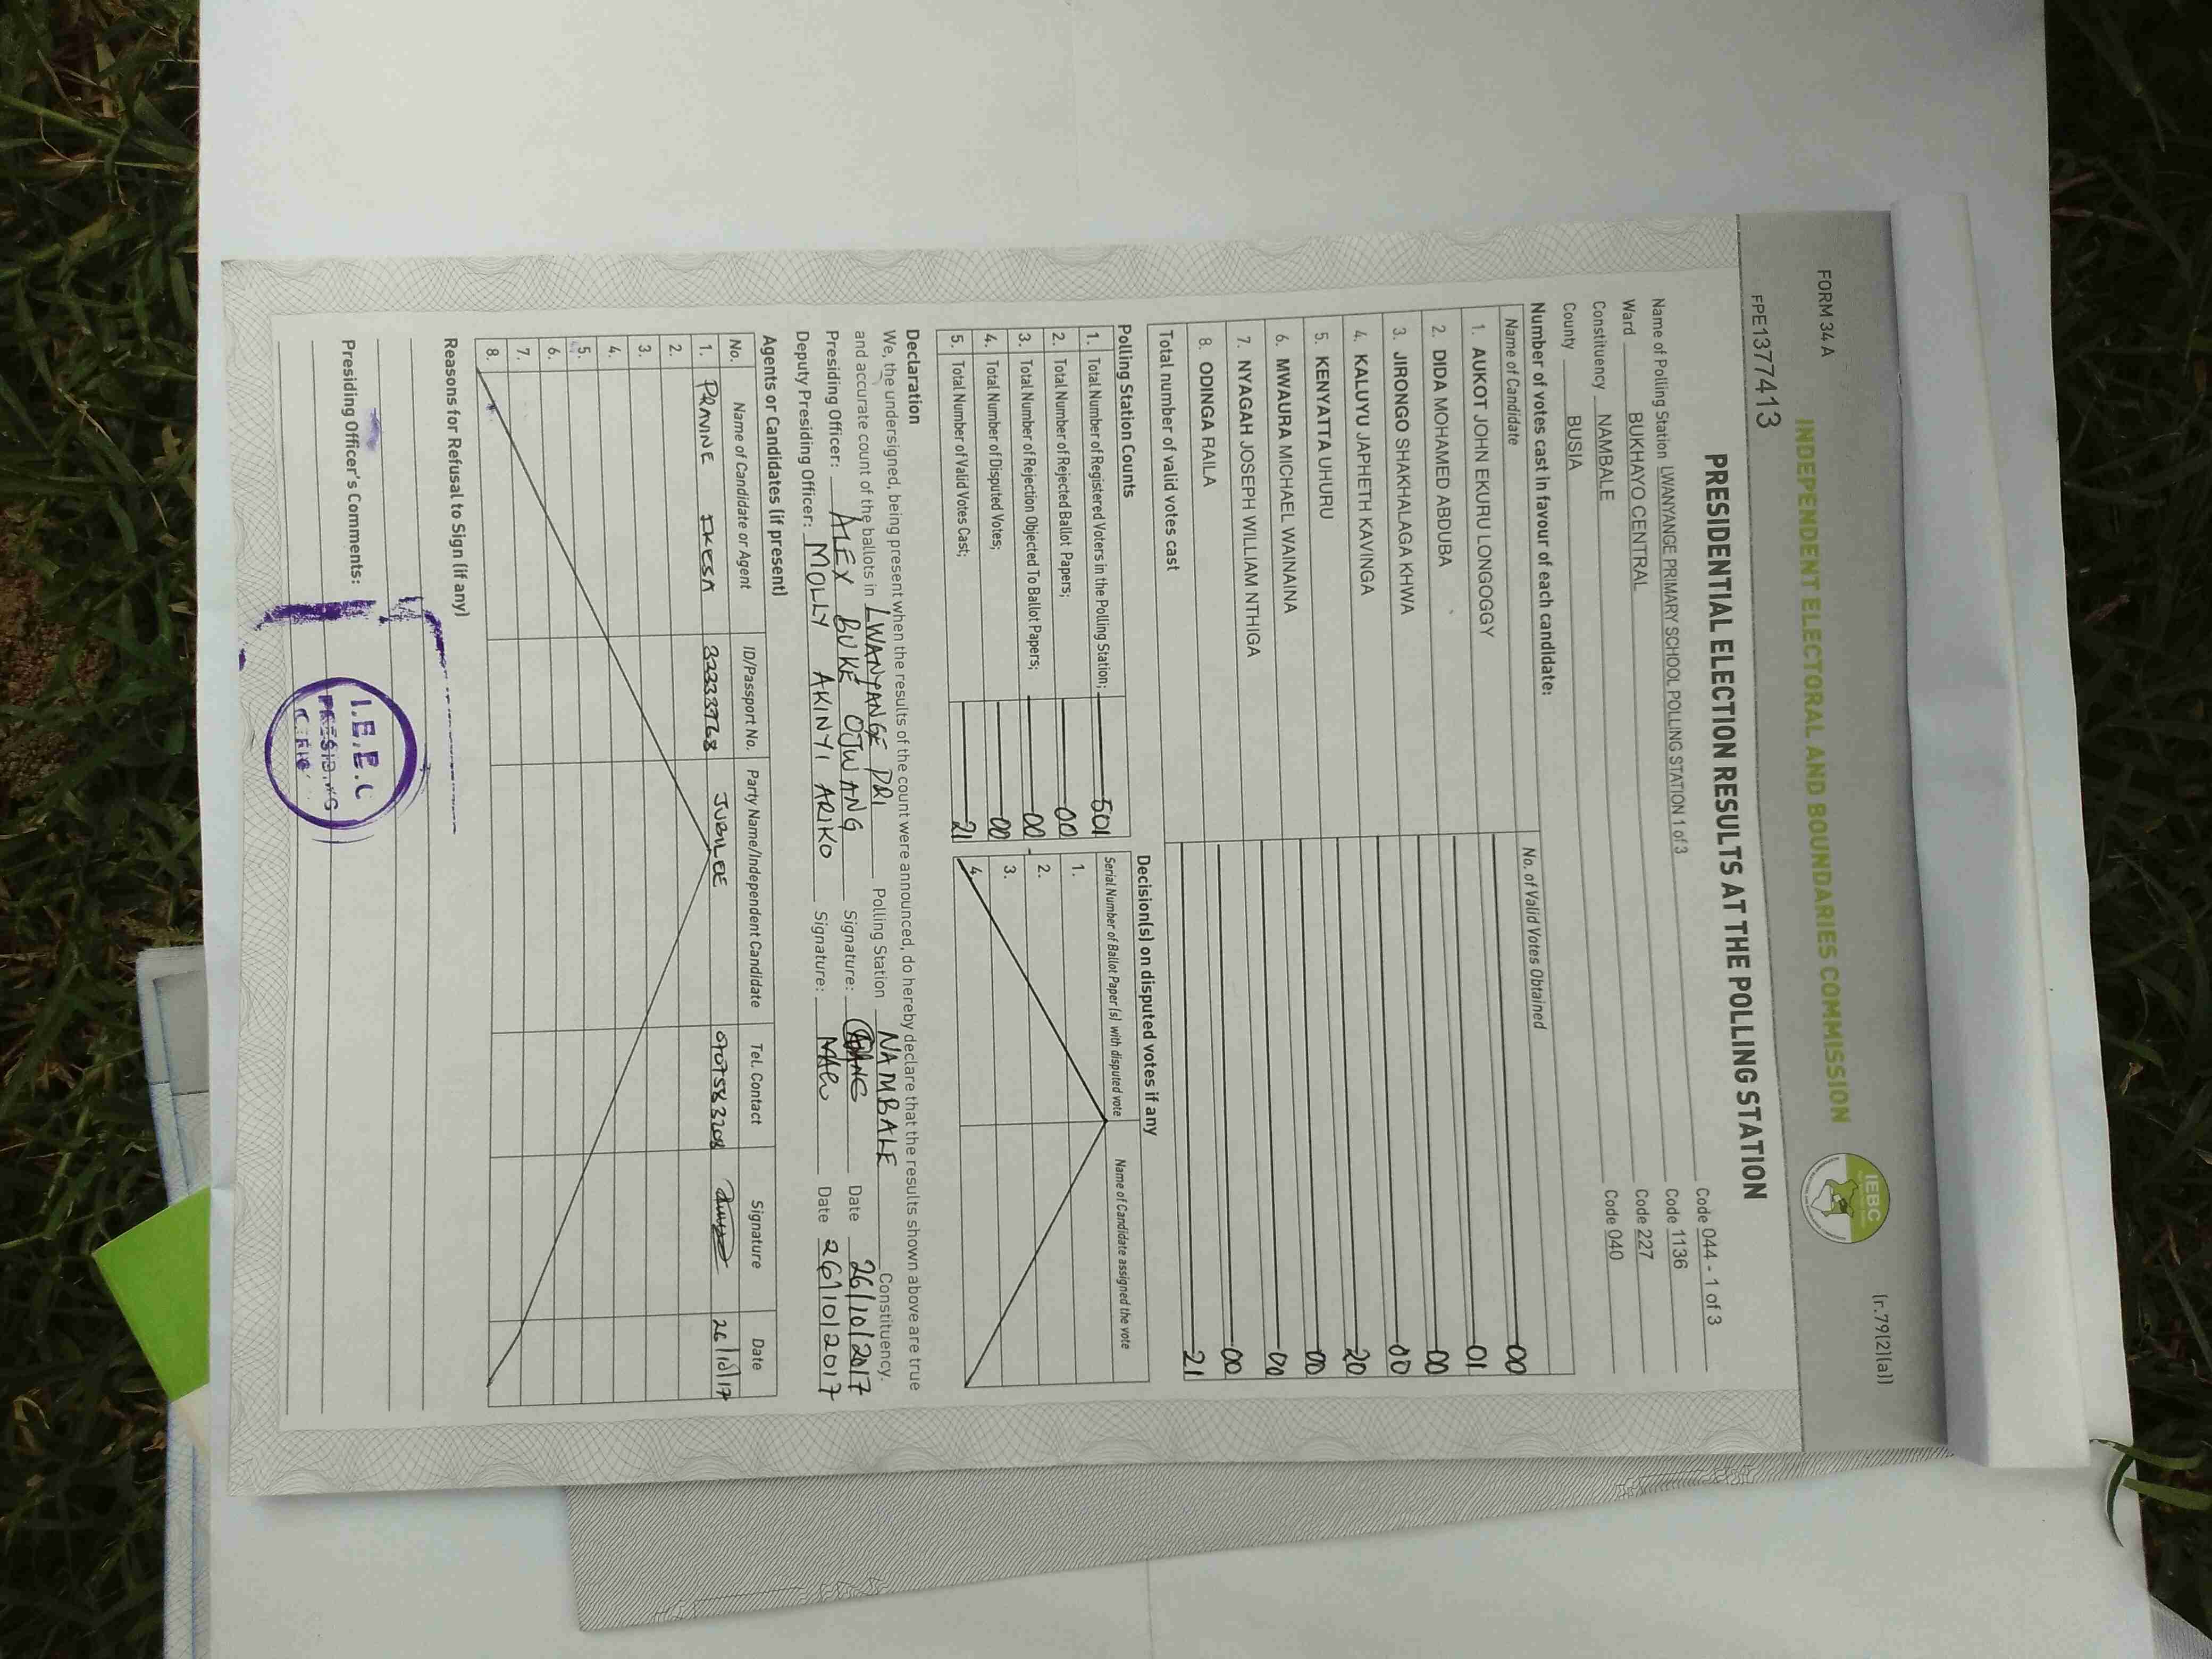 FORM 34 A
(r.79(2)(a))
INDEPENDENT ELECTORAL AND BOUNDARIES COMMISSION
IEBC
FPE1377413
PRESIDENTIAL ELECTION RESULTS AT THE POLLING STATION
Name of Polling Station LWANYANGE PRIMARY SCHOOL POLLING STATION 1 of 3 Code 044 - 1 of 3
Ward BUKHAYO CENTRAL Code 1136
Constituency NAMBALE Code 227
County BUSIA Code 040
Number of votes cast in favour of each candidate:
Name of Candidate No. of Valid Votes Obtained
1. AUKOT JOHN EKURU LONGOGGY 00
2. DIDA MOHAMED ABDUBA 01
3. JIRONGO SHAKHALAGA KHWA 00
4. KALUYU JAPHETH KAVINGA 00
5. KENYATTA UHURU 20
6. MWAURA MICHAEL WAINAINA 00
7. NYAGAH JOSEPH WILLIAM NTHIGA 00
8. ODINGA RAILA 00
Total number of valid votes cast 21
Polling Station Counts
1. Total Number of Registered Voters in the Polling Station; 501
2. Total Number of Rejected Ballot Papers; 00
3. Total Number of Rejection Objected To Ballot Papers; 00
4. Total Number of Disputed Votes; 00
5. Total Number of Valid Votes Cast; 21
Decision(s) on disputed votes if any
Serial Number of Ballot Paper (s) with disputed vote Name of Candidate assigned the vote
1.
2.
3.
4.
Declaration
We, the undersigned, being present when the results of the count were announced, do hereby declare that the results shown above are true
and accurate count of the ballots in LWANYANGE PRI Polling Station NAMBALE Constituency.
Presiding Officer: ALEX BUKE OJWANG Signature: Date 26/10/2017
Deputy Presiding Officer: MOLLY AKINYI ARIKO Signature: Date 26/10/2017
Agents or Candidates (if present)
No. Name of Candidate or Agent ID/Passport No. Party Name/Independent Candidate Tel. Contact Signature Date
1. JUBILEE 26/10/17
2.
3.
4.
5.
6.
7.
8.
Reasons for Refusal to Sign (if any)
Presiding Officer's Comments:
I.E.B.C
PRESIDING